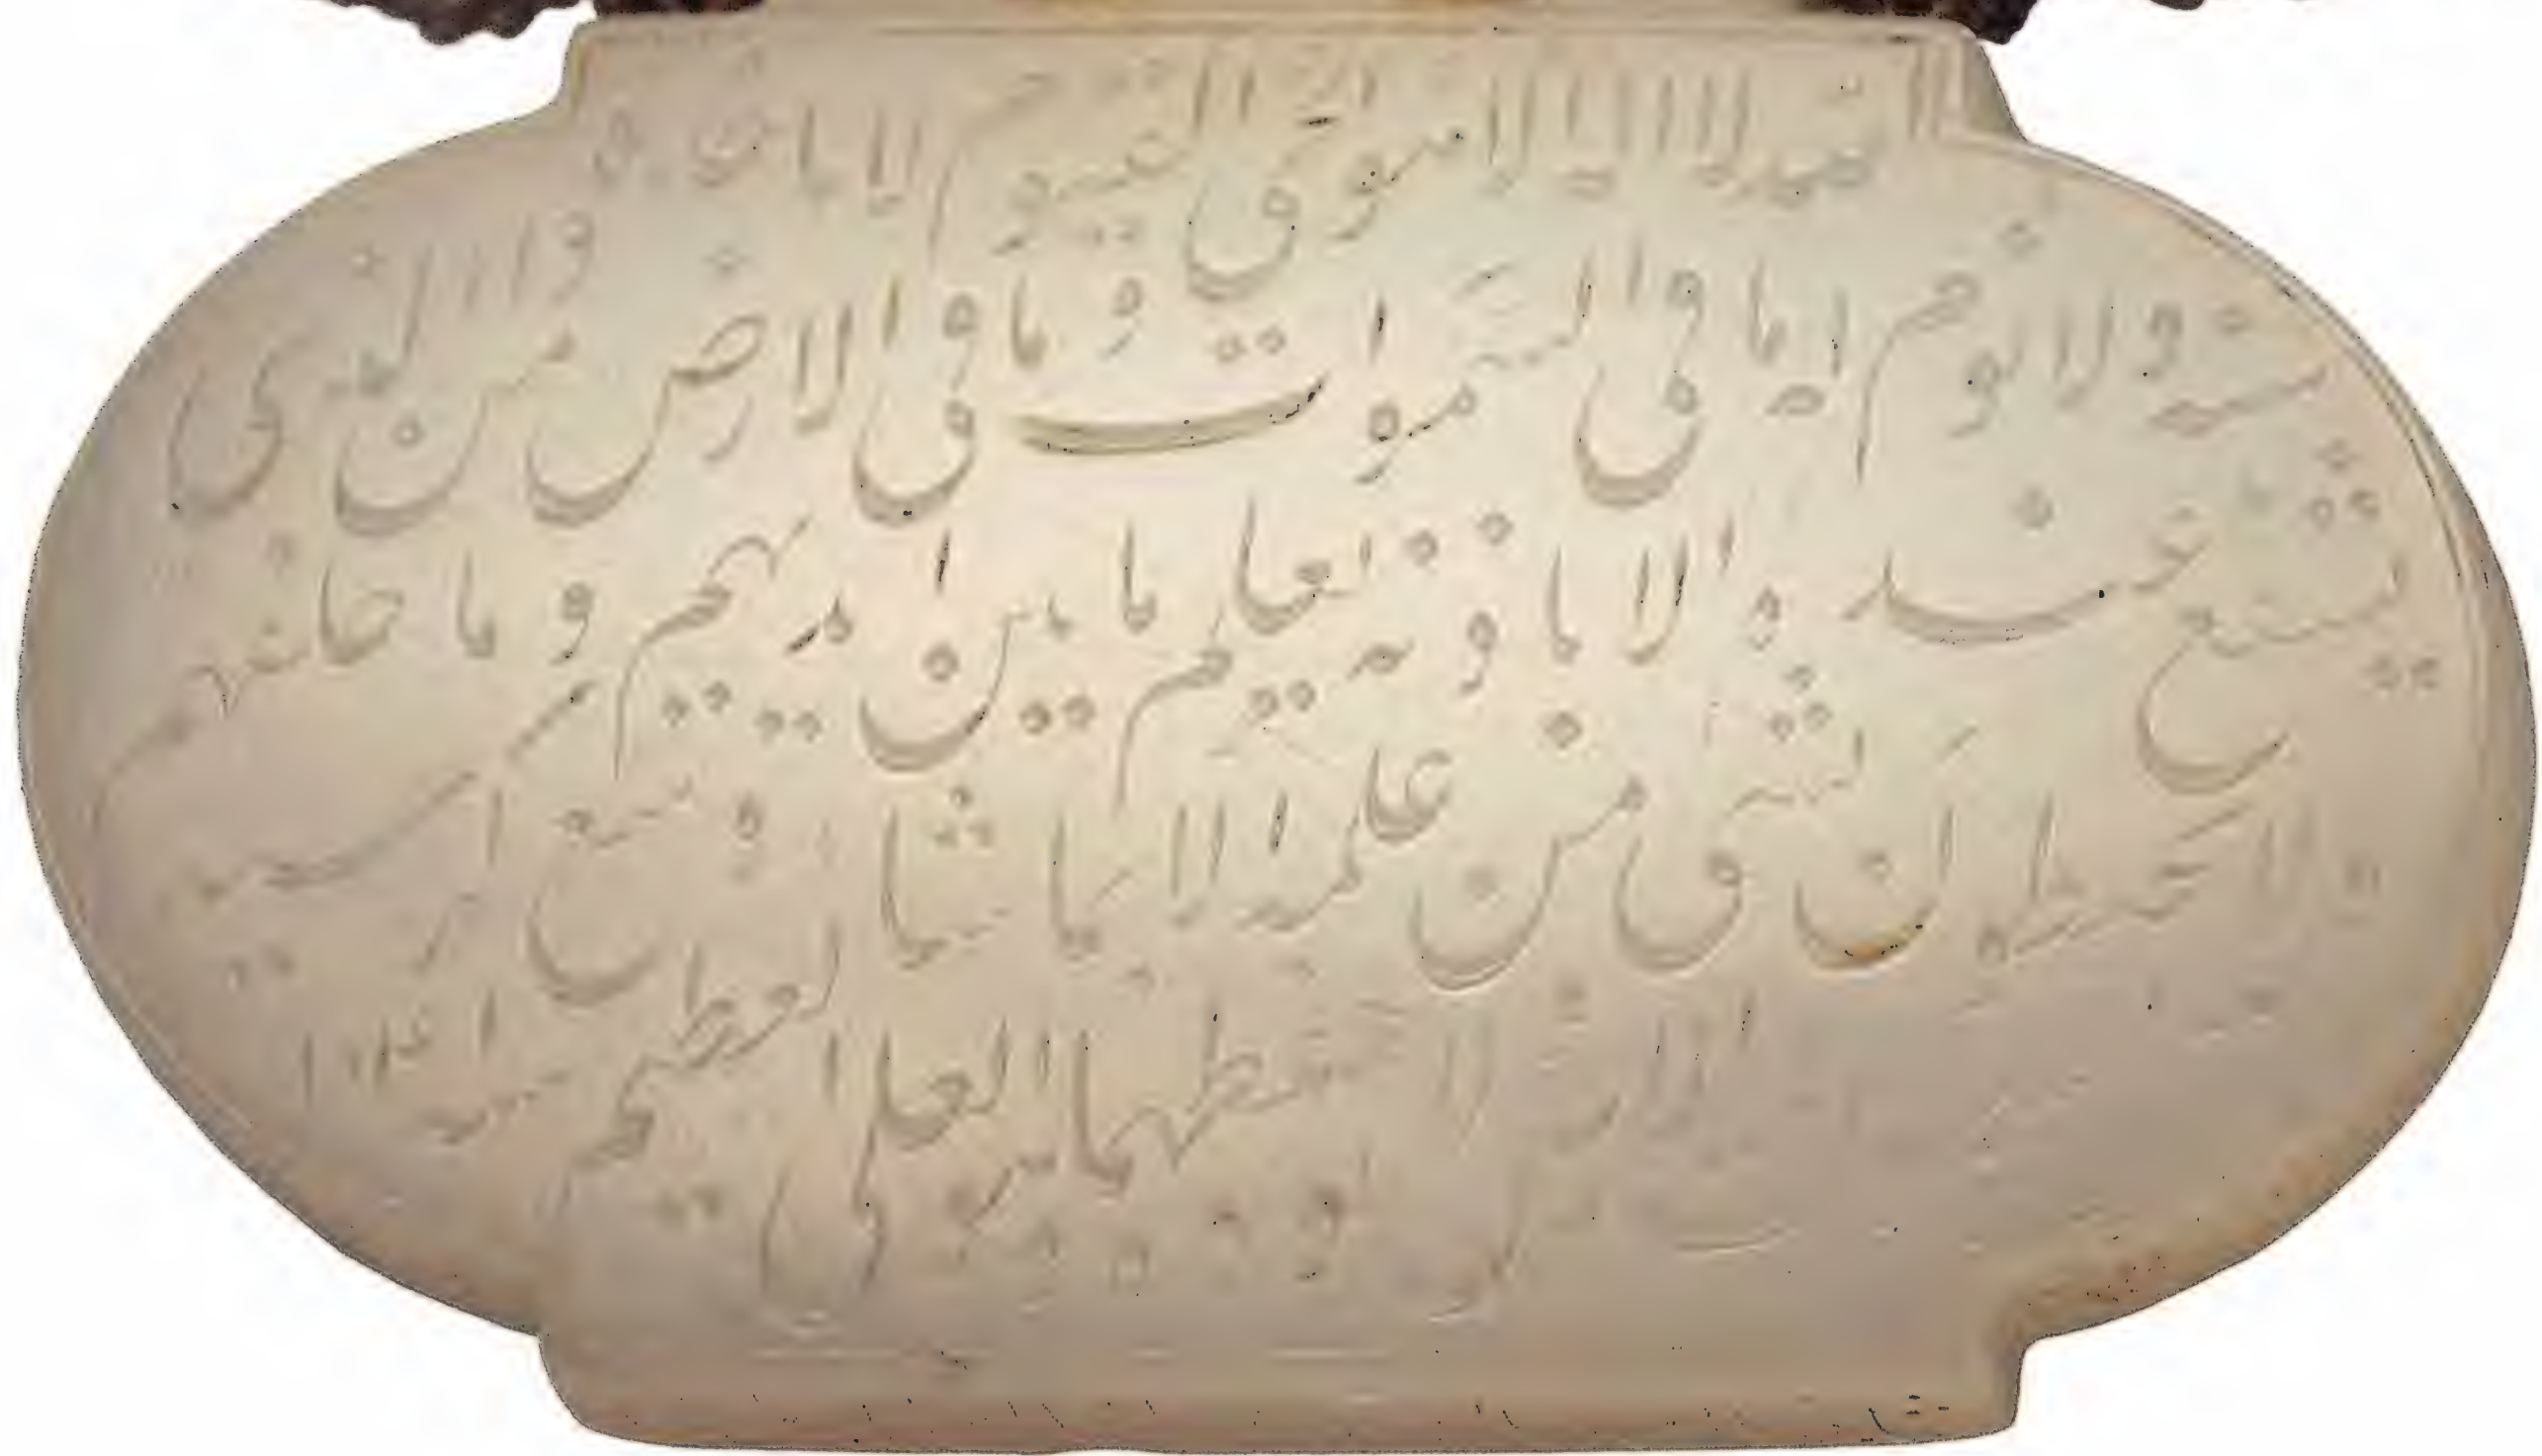 الله لا اله الا هو الحي القيوم لا تاخذه
سنة ولا نوم له ما في السموات وما في الارض من ذا الذي
يشفع عنده الا باذنه يعلم ما بين ايديهم وما خلفهم
ولا يحيطون بشي من علمه الا بما شا وسع كرسيه
السموات والارض ولا يوده حفظهما وهو العلي العظيم